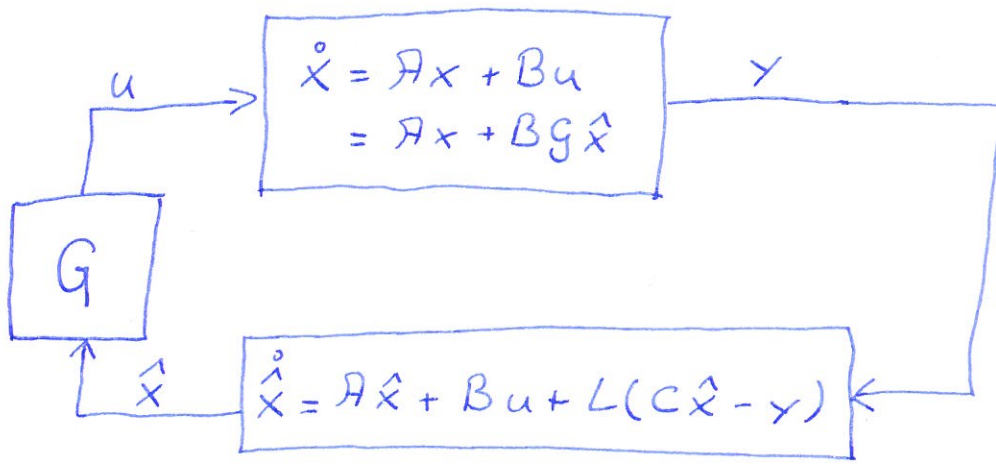 u
ẋ = Ax + Bu
= Ax + BGx̂
y
G
x̂
x̂̇ = Ax̂ + Bu + L(Cx̂ - y)